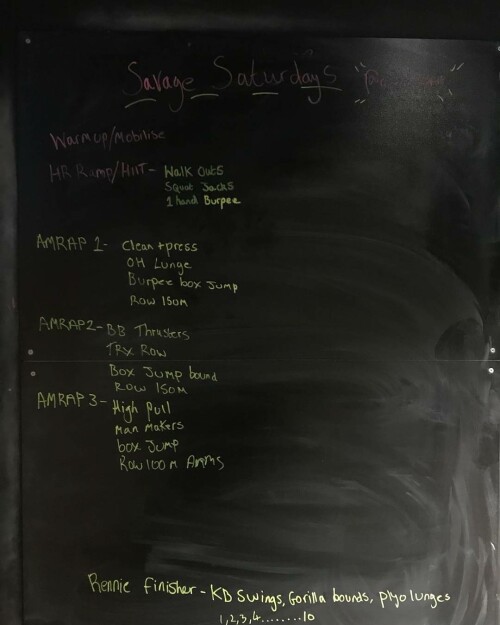 Savage Saturdays
Warmup/Mobilise
HR Ramp/HIIT - Walk Outs
Squat Jacks
1 hand Burpee
AMRAP 1 - Clean + press
OH Lunge
Burpee box Jump
Row 150m
AMRAP 2 - BB Thrusters
TRX Row
Box Jump bound
Row 150m
AMRAP 3 - High Pull
Man Makers
box Jump
Row 100m Arms
Rennie finisher - KB Swings, Gorilla bounds, plyo lunges
1,2,3,4........10